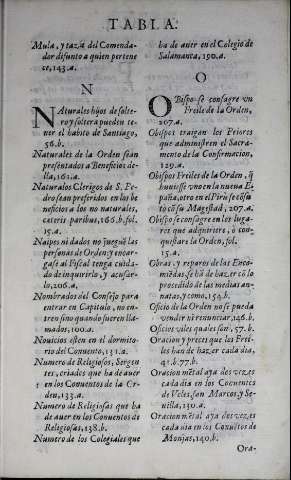 TABLA.
Mula, y taza del Comenda-
dor difunto a quien pertene
ce, 143.a.
N
NAturales hijos de solte-
ro y soltera pueden te-
ner el habito de Santiago,
56.b.
Naturales de la Orden sean
presentados a Beneficios de-
lla, 161.a.
Naturalos Clerigos de S. Pe-
dro sean preferidos en los be
neficios a los no naturales,
cæteris paribus, 166.b. fol.
15.a.
Naipes ni dados no juegue las
personas de Orden: y encar-
gase al Fiscal tenga cuida-
do de inquirirlo, y acusar-
lo, 206.a.
Nombrados del Consejo para
entrar en Capitulo, no en-
tren sino quando fueren lla-
mados, 100.a.
Nouicios esten en el dormito-
rio del Conuento, 131.a.
Numero de Religiosos, Sergen
tes, criados que ha de auer
en los Conuentos de la Or-
den, 133.a.
Numero de Religiosas que ha
de auer en los Conuentos de
Religiosas, 138.b.
Numero de los Colegiales que
ha de auer en el Colegio de
Salamanca, 190.a.
O
OBispo se consagre vn
Freile de la Orden,
207.a.
Obispos traigan los Priores
que administren el Sacra-
mento de la Confirmacion,
129.a.
Obispos Freiles de la Orden, q̃
huuiesse vno en la nueua Es
paña, otro en el Pirù se cõsu
tò cõ su Magestad, 207.a.
Obispo se consagre en los luga-
res que adquiriere, ò con-
quistare la Orden, fol.
15.a.
Obras, y reparos de las Enco-
miẽdas, se hã de hazer cõ lo
procedido de las medias an-
natas, y como, 154.b.
Oficio de la Orden no se pueda
vender ni renunciar, 146.b.
Oficios viles quales son, 57.b.
Oracion y preces que los Frei-
les han de hazer cada dia,
41.b. 77.b.
Oracion mẽtal aya dos vezes
cada dia en los Conuentos
de Veles, san Marcos, y Se-
uilla, 130.a.
Oracion mẽtal aya dos vezes
cada dia en los Conuẽtos de
Monjas, 140.b.
Ora-